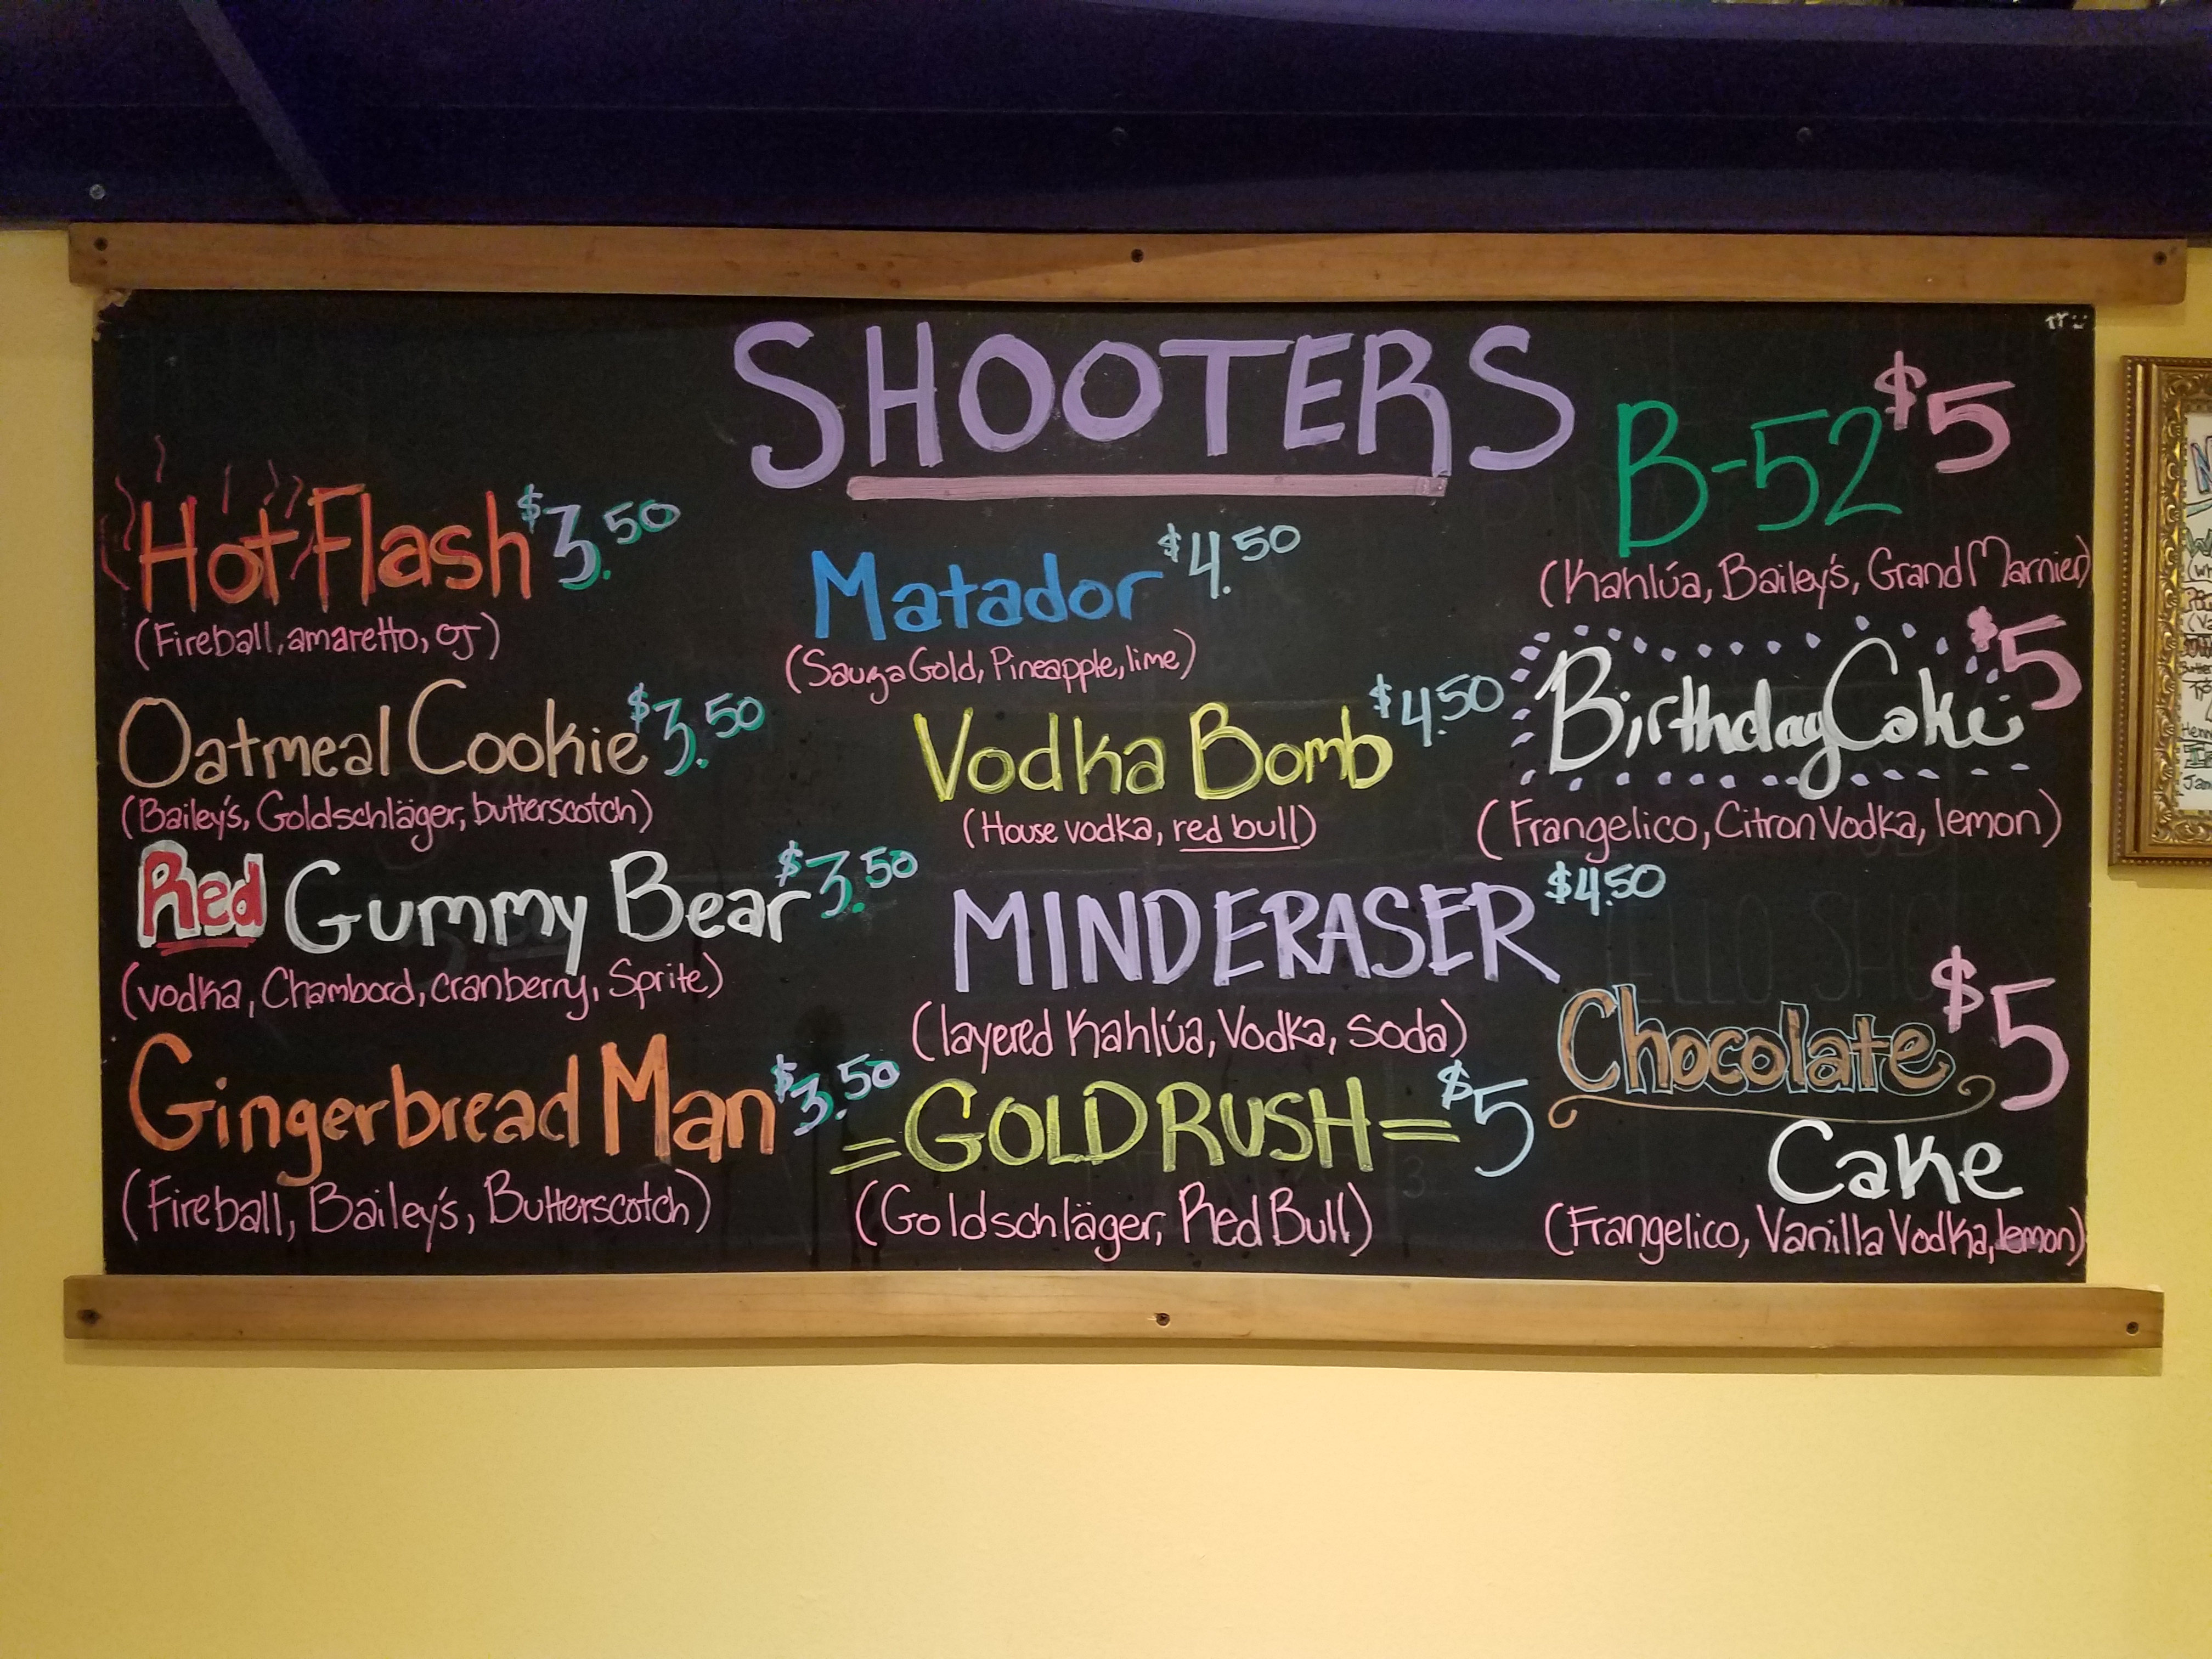 SHOOTERS
Hot Flash $3.50
(Fireball, amaretto, OJ)
Oatmeal Cookie $3.50
(Bailey's, Goldschläger, butterscotch)
Red Gummy Bear $3.50
(vodka, Chambord, cranberry, Sprite)
Gingerbread Man $3.50
(Fireball, Bailey's, Butterscotch)
Matador $4.50
(Sauza Gold, Pineapple, lime)
Vodka Bomb $4.50
(House vodka, red bull)
MINDERASER $4.50
(layered Kahlúa, Vodka, soda)
=GOLD RUSH= $5
(Goldschläger, Red Bull)
B-52 $5
(Kahlúa, Bailey's, Grand Marnier)
Birthday Cake $5
(Frangelico, Citron Vodka, lemon)
Chocolate $5
Cake
(Frangelico, Vanilla Vodka, lemon)